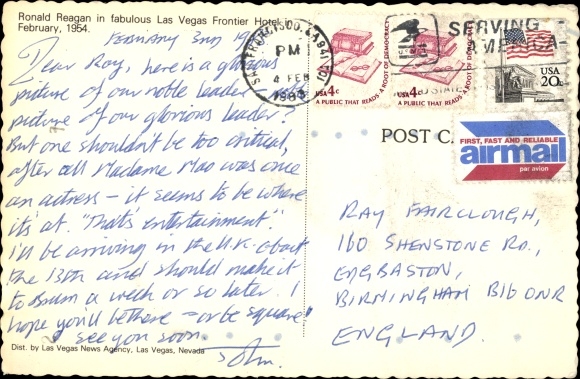 Ronald Reagan in fabulous Las Vegas Frontier Hotel
February, 1954.
February 2nd 19
Dear Ray, here is a glorious
picture of our noble leader -
picture of our glorious leader?
But one shouldn't be too critical,
after all Madame Mao was once
an actress - it seems to be where
it's at. "That's entertainment".
I'll be arriving in the U.K. about
the 13th and should make it
to Brum a week or so later. I
hope you'll be there - or be square
see you soon.
John.
Dist. by Las Vegas News Agency, Las Vegas, Nevada
SAN FRANCISCO, CA 941
PM
4 FEB
USA 4c
A PUBLIC THAT READS A ROOT OF DEMOCRACY
USA 4c
A PUBLIC THAT READS A ROOT OF DEMOCRACY
SERVING
AMERICA
USA
20c
POST C
FIRST, FAST AND RELIABLE
airmail
par avion
RAY FAIRCLOUGH,
160 SHENSTONE RD.,
EDGBASTON,
BIRMINGHAM B16 0NR
ENGLAND.